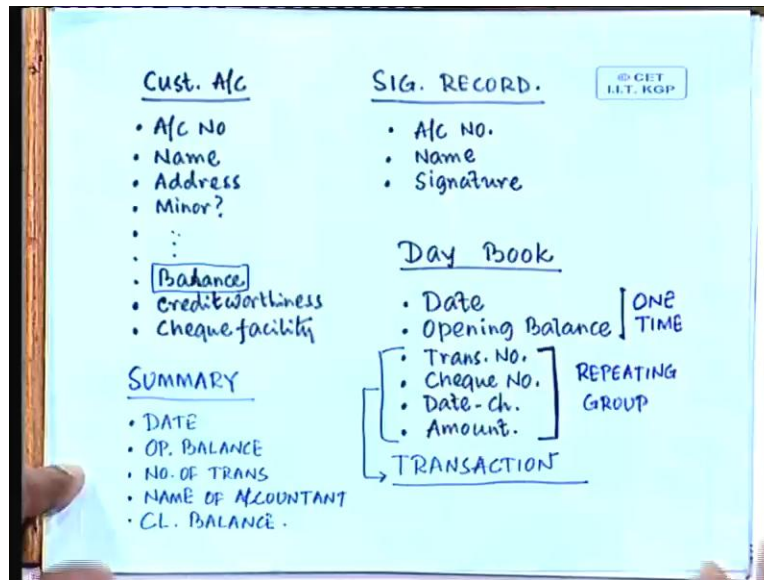 Cust. A/C
• A/C No
• Name
• Address
• Minor?
• :
• :
• Balance
• Creditworthiness
• Cheque facility
SUMMARY
• DATE
• OP. BALANCE
• NO. OF TRANS
• NAME OF ACCOUNTANT
• CL. BALANCE.
SIG. RECORD.
• A/C No.
• Name
• Signature
© CET
I.I.T. KGP
Day Book
• Date
• Opening Balance
ONE
TIME
• Trans. No.
• Cheque No.
• Date-Ch.
• Amount.
REPEATING
GROUP
TRANSACTION